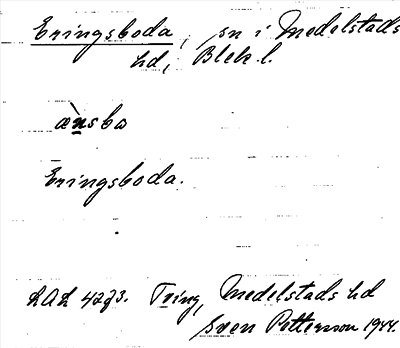 Eringsboda, sn i Medelstads
hd, Blek. l.
ænsba
Eringsboda.
LAL 4293. Tving, Medelstads hd
Sven Petterson 1944.